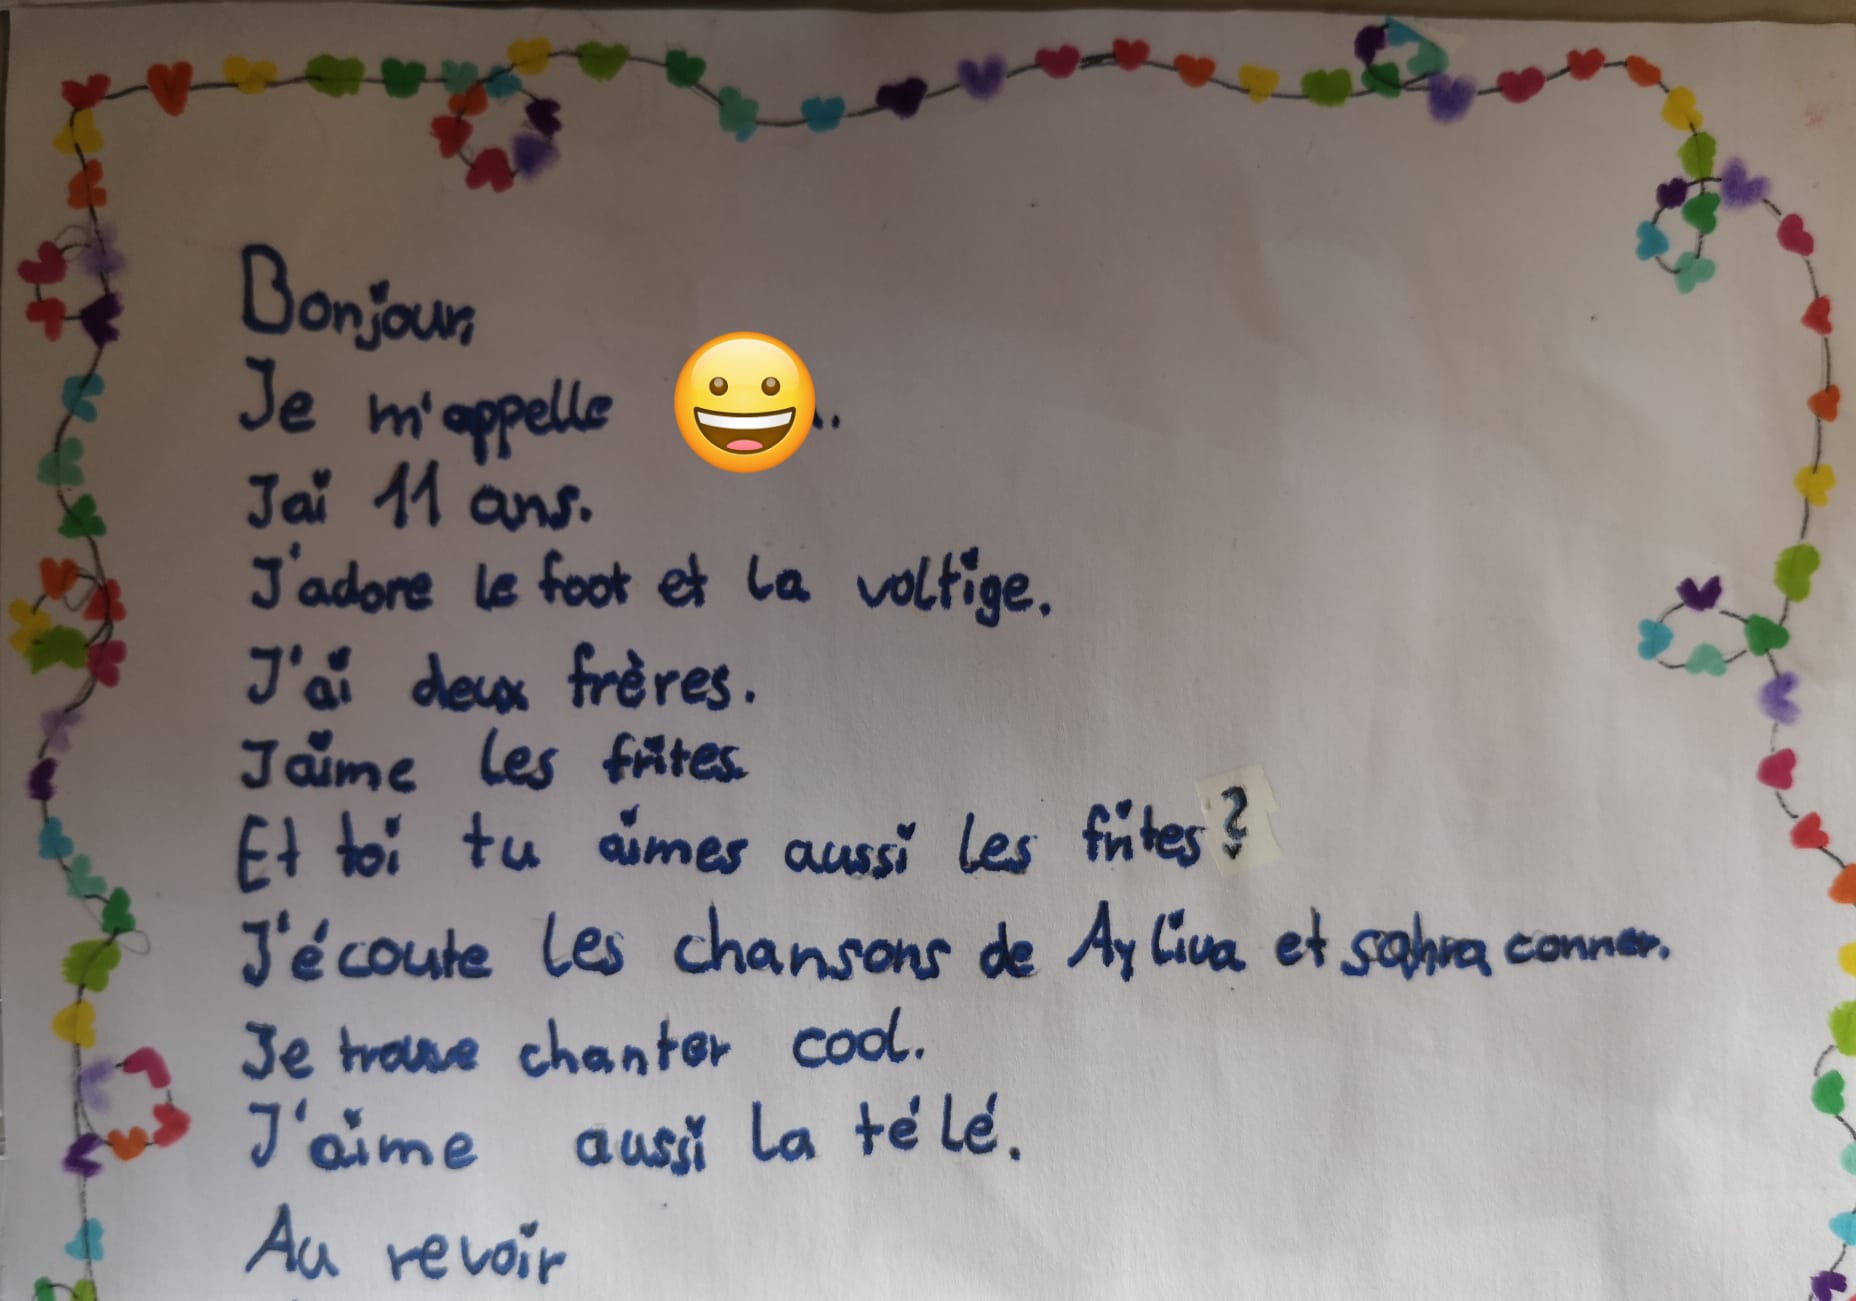 Bonjour,
Je m'appelle
Jai 11 ans.
J'adore le foot et la voltige.
J'ai deux frères.
Jaime les frites.
Et toi tu aimes aussi les frites?
J'écoute les chansons de Ayliva et sahra conner.
Je trouve chanter cool.
J'aime aussi la télé.
Au revoir